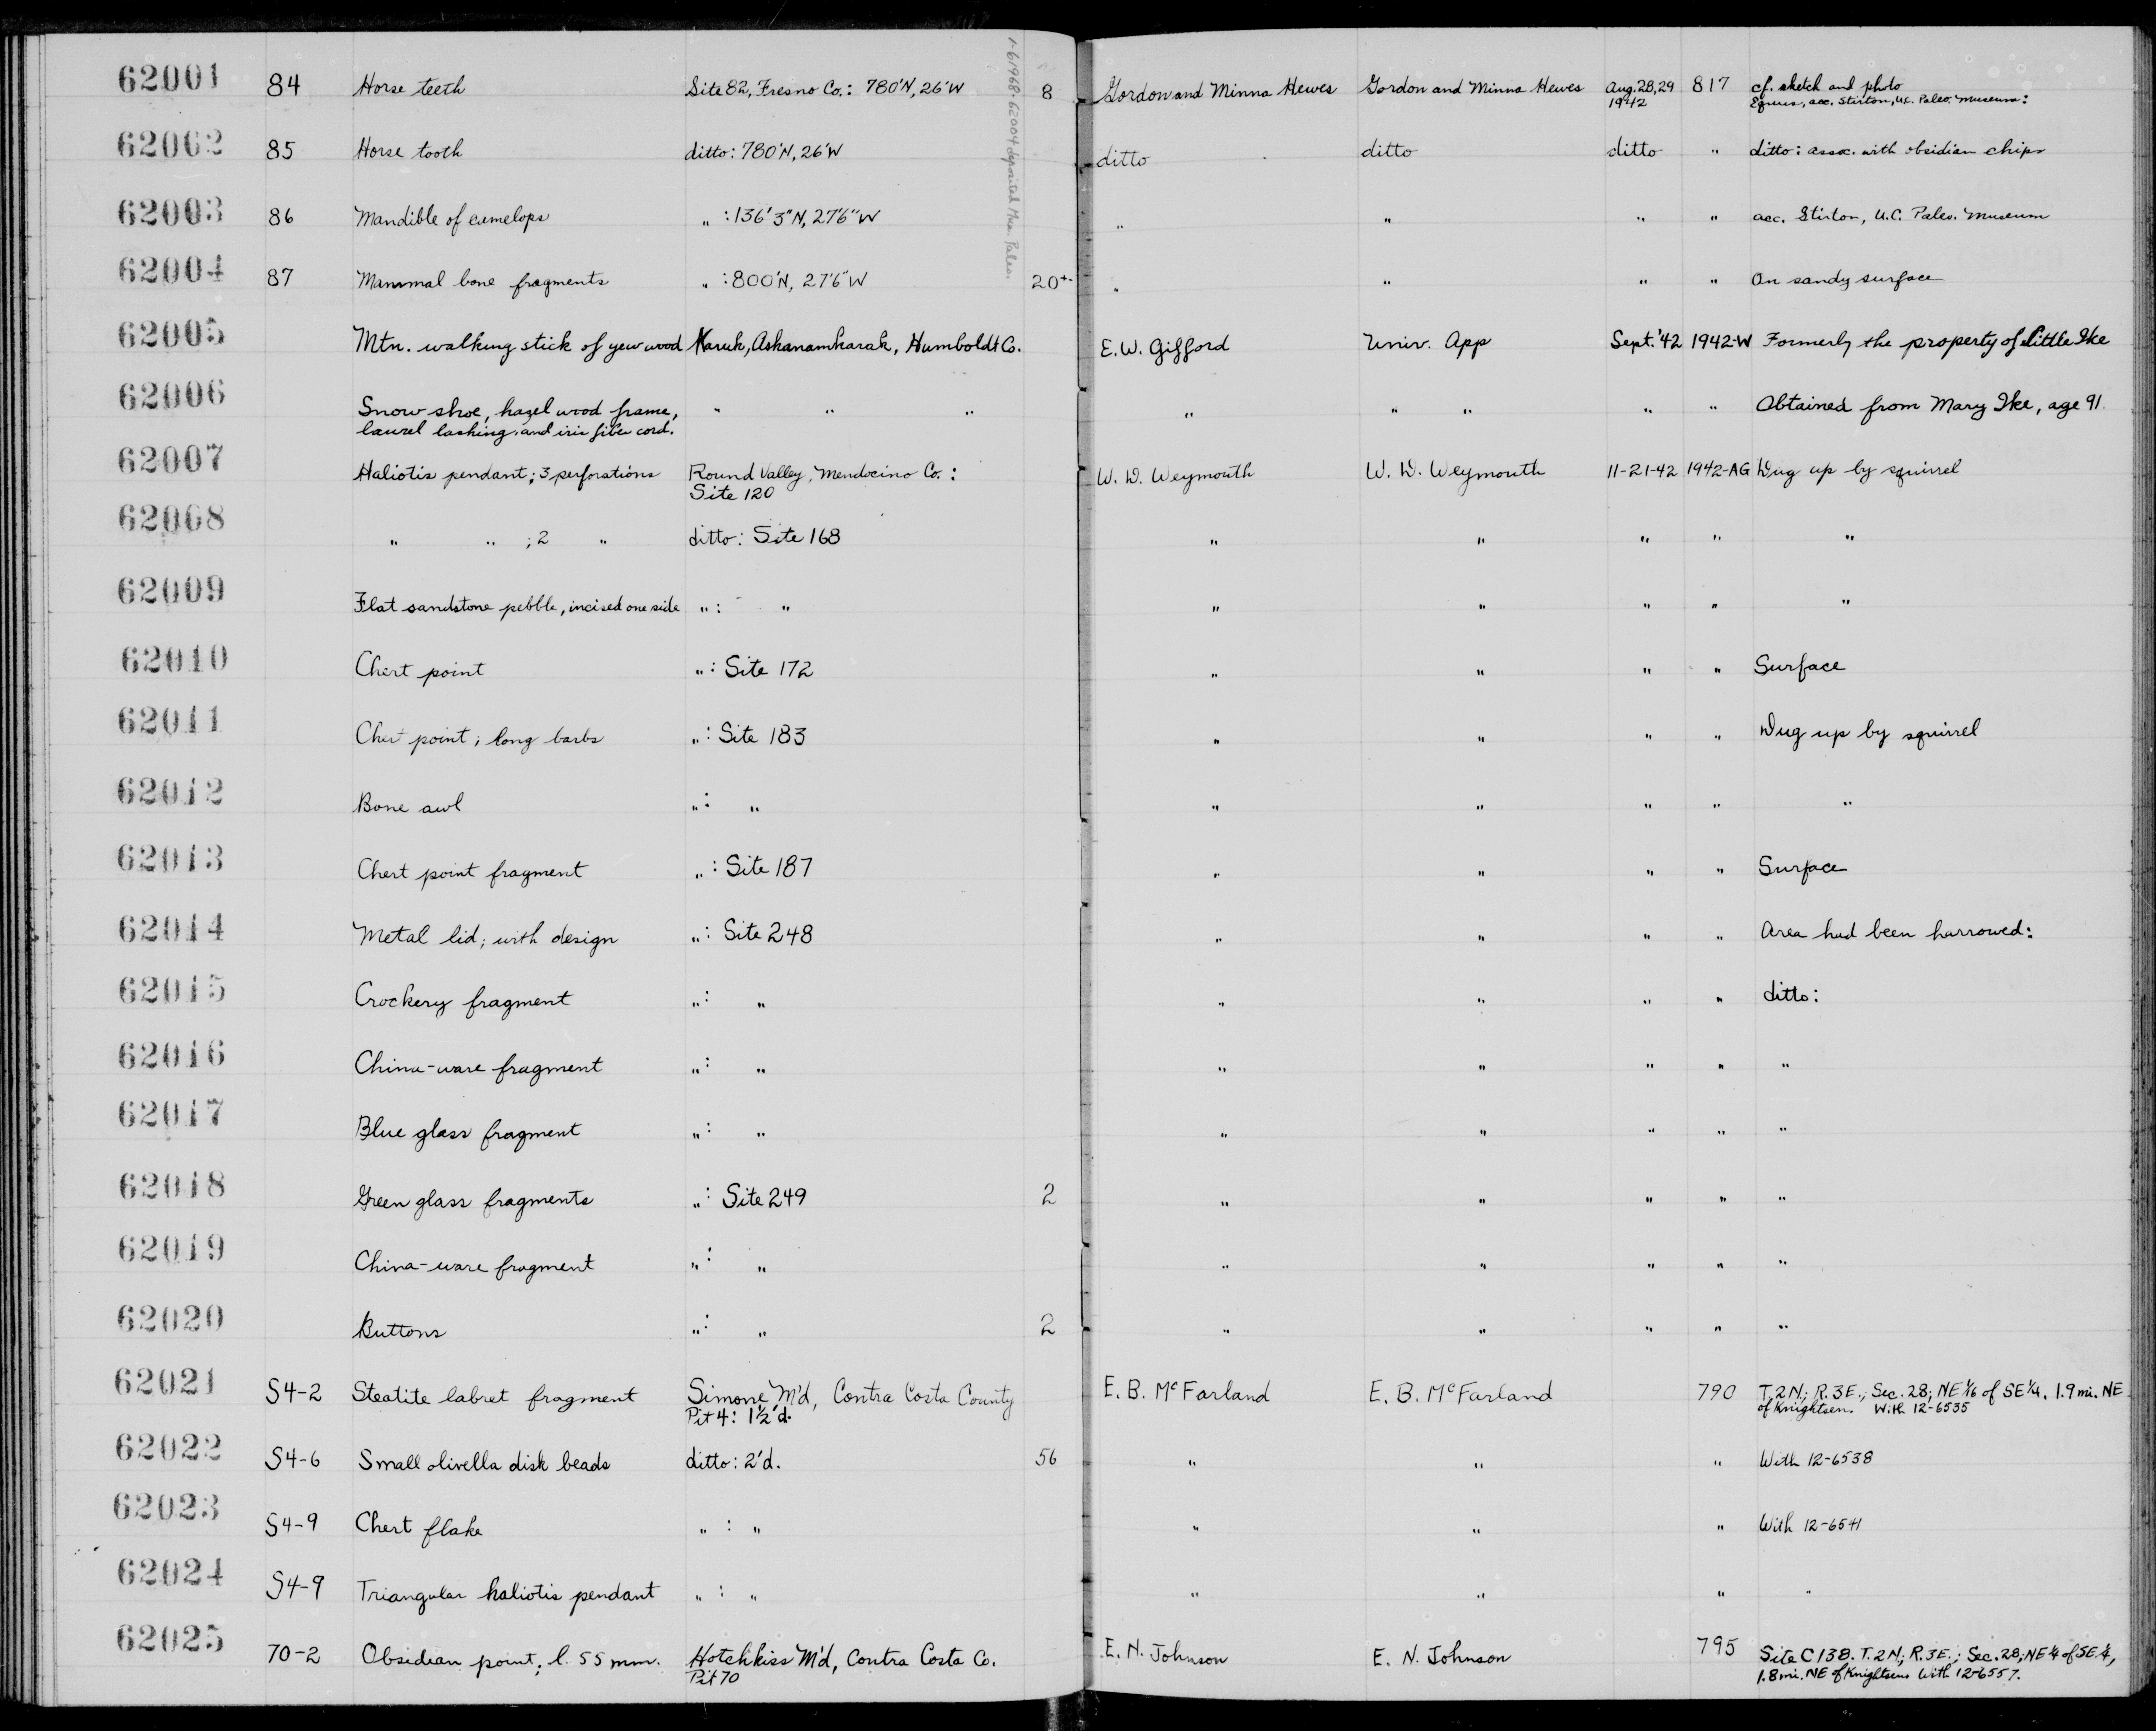 62001 84 Horse teeth Site 82, Fresno Co.: 780'N, 26'W 8 Gordon and Minna Hewes Gordon and Minna Hewes Aug. 28, 29 1942 817 cf. sketch and photo
Equus, acc. Stirton, U.C. Paleo. Museum:
1-61968-62004 deposited Mus. Paleo.
62002 85 Horse tooth ditto: 780'N, 26'W ditto ditto ditto " ditto: assoc. with obsidian chips
62003 86 Mandible of camelops " : 136'3"N, 27'6"W " " " " acc. Stirton, U.C. Paleo. Museum
62004 87 Mammal bone fragments " : 800'N, 27'6"W 20+- " " " " On sandy surface
62005 Mtn. walking stick of yew wood Karuk, Ashanamkarak, Humboldt Co. E.W. Gifford Univ. App Sept. '42 1942-W Formerly the property of Little Ike
62006 Snow shoe, hazel wood frame, " " " " " " " " Obtained from Mary Ike, age 91.
laurel lashing, and iris fiber cord.
62007 Haliotis pendant; 3 perforations Round Valley, Mendocino Co.: W. D. Weymouth W. D. Weymouth 11-21-42 1942-AG Dug up by squirrel
Site 120
62008 " " ; 2 " ditto: Site 168 " " " " "
62009 Flat sandstone pebble, incised one side " : " " " " " "
62010 Chert point " : Site 172 " " " " Surface
62011 Chert point; long barbs " : Site 183 " " " " Dug up by squirrel
62012 Bone awl " : " " " " " "
62013 Chert point fragment " : Site 187 " " " " Surface
62014 Metal lid; with design " : Site 248 " " " " Area had been harrowed:
62015 Crockery fragment " : " " " " " ditto:
62016 China-ware fragment " : " " " " " "
62017 Blue glass fragment " : " " " " " "
62018 Green glass fragments " : Site 249 2 " " " " "
62019 China-ware fragment " : " " " " " "
62020 Buttons " : " 2 " " " " "
62021 S4-2 Steatite labret fragment Simone M'd, Contra Costa County E. B. McFarland E. B. McFarland 790 T. 2 N.; R. 3 E.; Sec. 28; NE 1/16 of SE 1/4. 1.9 mi. NE
Pit 4: 1 1/2' d. of Knightsen. With 12-6535
62022 S4-6 Small olivella disk beads ditto: 2'd. 56 " " " With 12-6538
62023 S4-9 Chert flake " : " " " " With 12-6541
62024 S4-9 Triangular haliotis pendant " : " " " " "
62025 70-2 Obsidian point; l. 55 mm. Hotchkiss M'd, Contra Costa Co. E. N. Johnson E. N. Johnson 795 Site C 138. T. 2 N.; R. 3 E.; Sec. 28; NE 1/4 of SE 1/4,
Pit 70 1.8 mi. NE of Knightsen. With 12-6557.